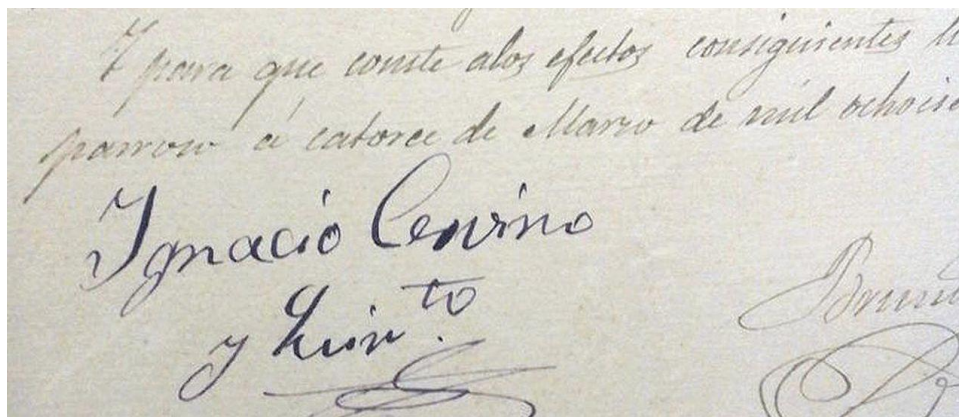 Y para que conste alos efectos consiguientes
parroco á catorce de Marzo de mil ochocie
Ignacio Cervino
y
Bruno